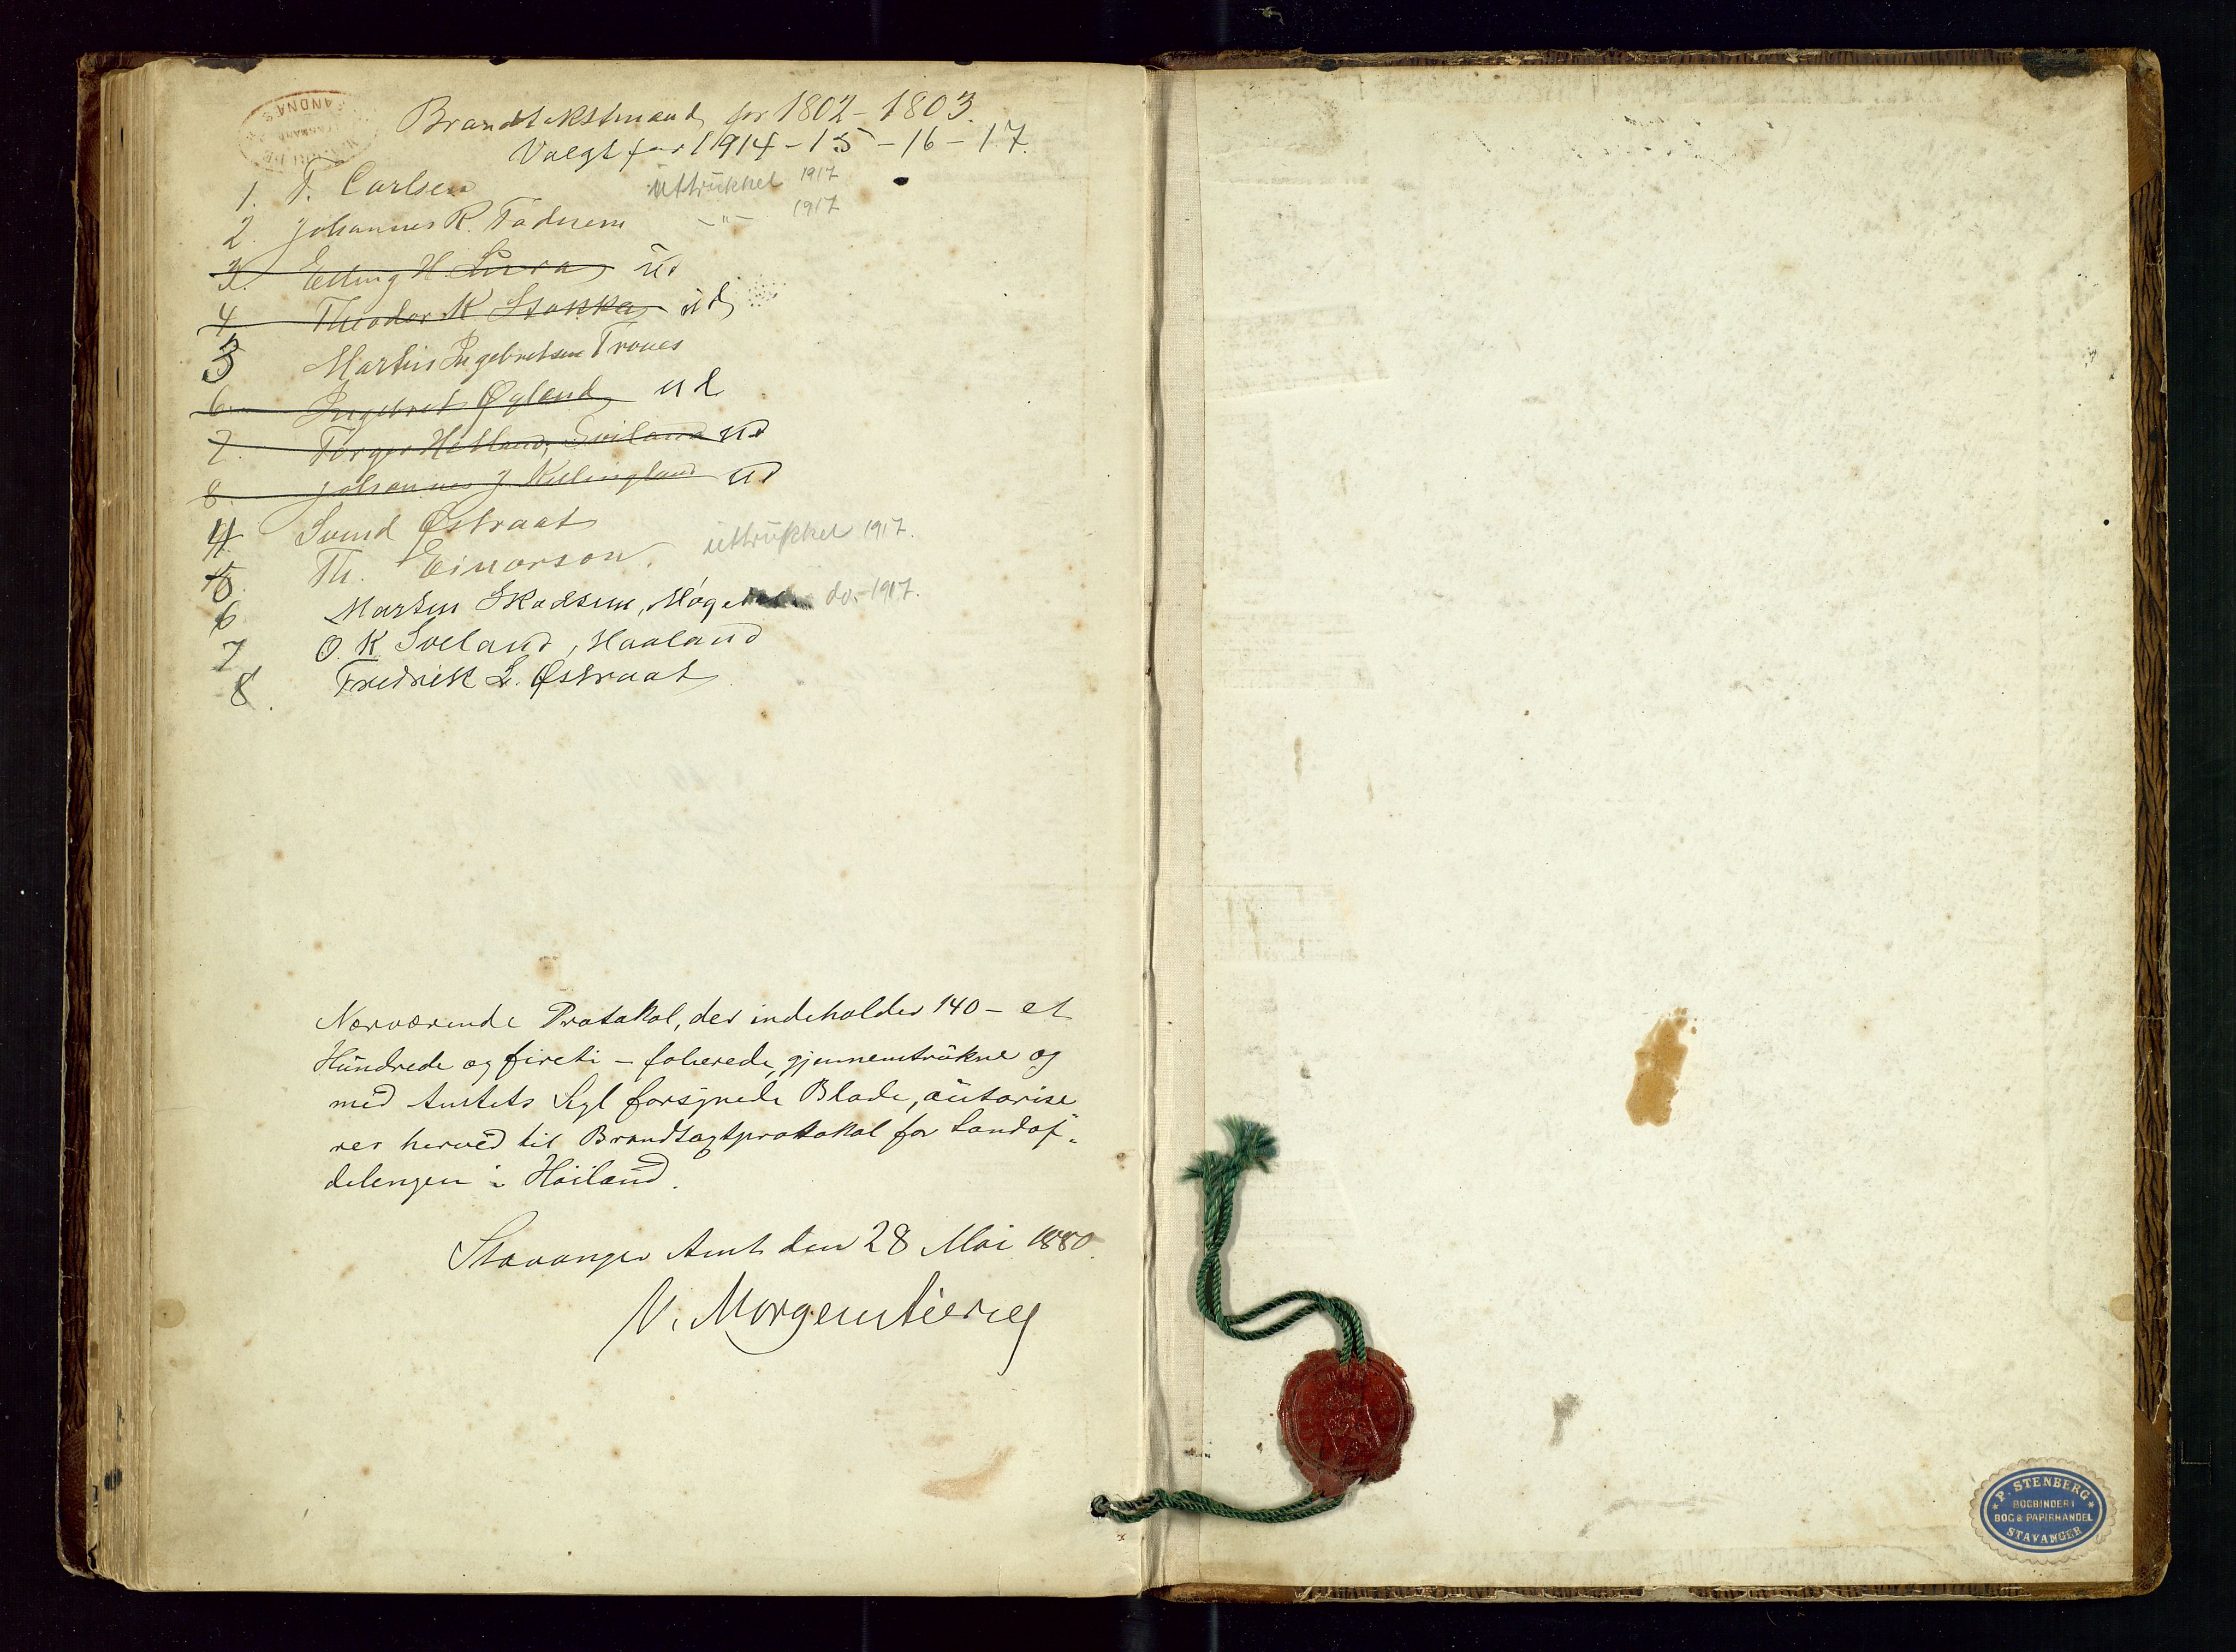 Brandtakstmænd for 1802-1803.
Valgt for 1914-15-16-17.
1. T. Carlsen uttrükket 1917
2. Johannes R. Tadnem -"- 1917
3. Elling H. Lura ud
4. Theodor K Stokka ud
3 Martin Ingebretsen Trones
6. Ingebret Øgland ud
7. Torger Hetland, Sviland ud
8. Johannes J. Kulingland ud
4 Svend Østraat
5. Th. Einarson. üttrükket 1917.
6 Martin Skadsem, do. 1917.
7 O. K. Sveland, Haaland
8. Fredrik L. Østraat
Nærværende Protokol, der indeholder 140 - et
Hundrede og firti - folierede, gjennemtrukne og
med Amtets Segl forsynede Blade, autorise
res herved til Brandtaxtprotokol for Landaf-
delengen i Høiland.
Stavanger Amt den 28 Mai 1880.
V. Morgenstierne
P. STENBERG
BOGBINDERI
BOG & PAPIRHANDEL
STAVANGER